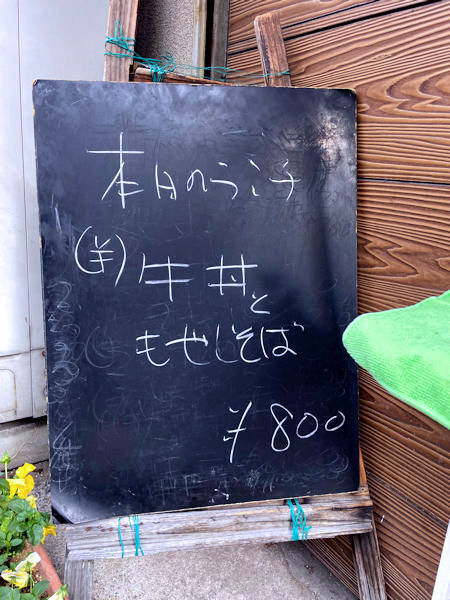 本日のランチ
(半)牛丼
と
もやしそば
¥800